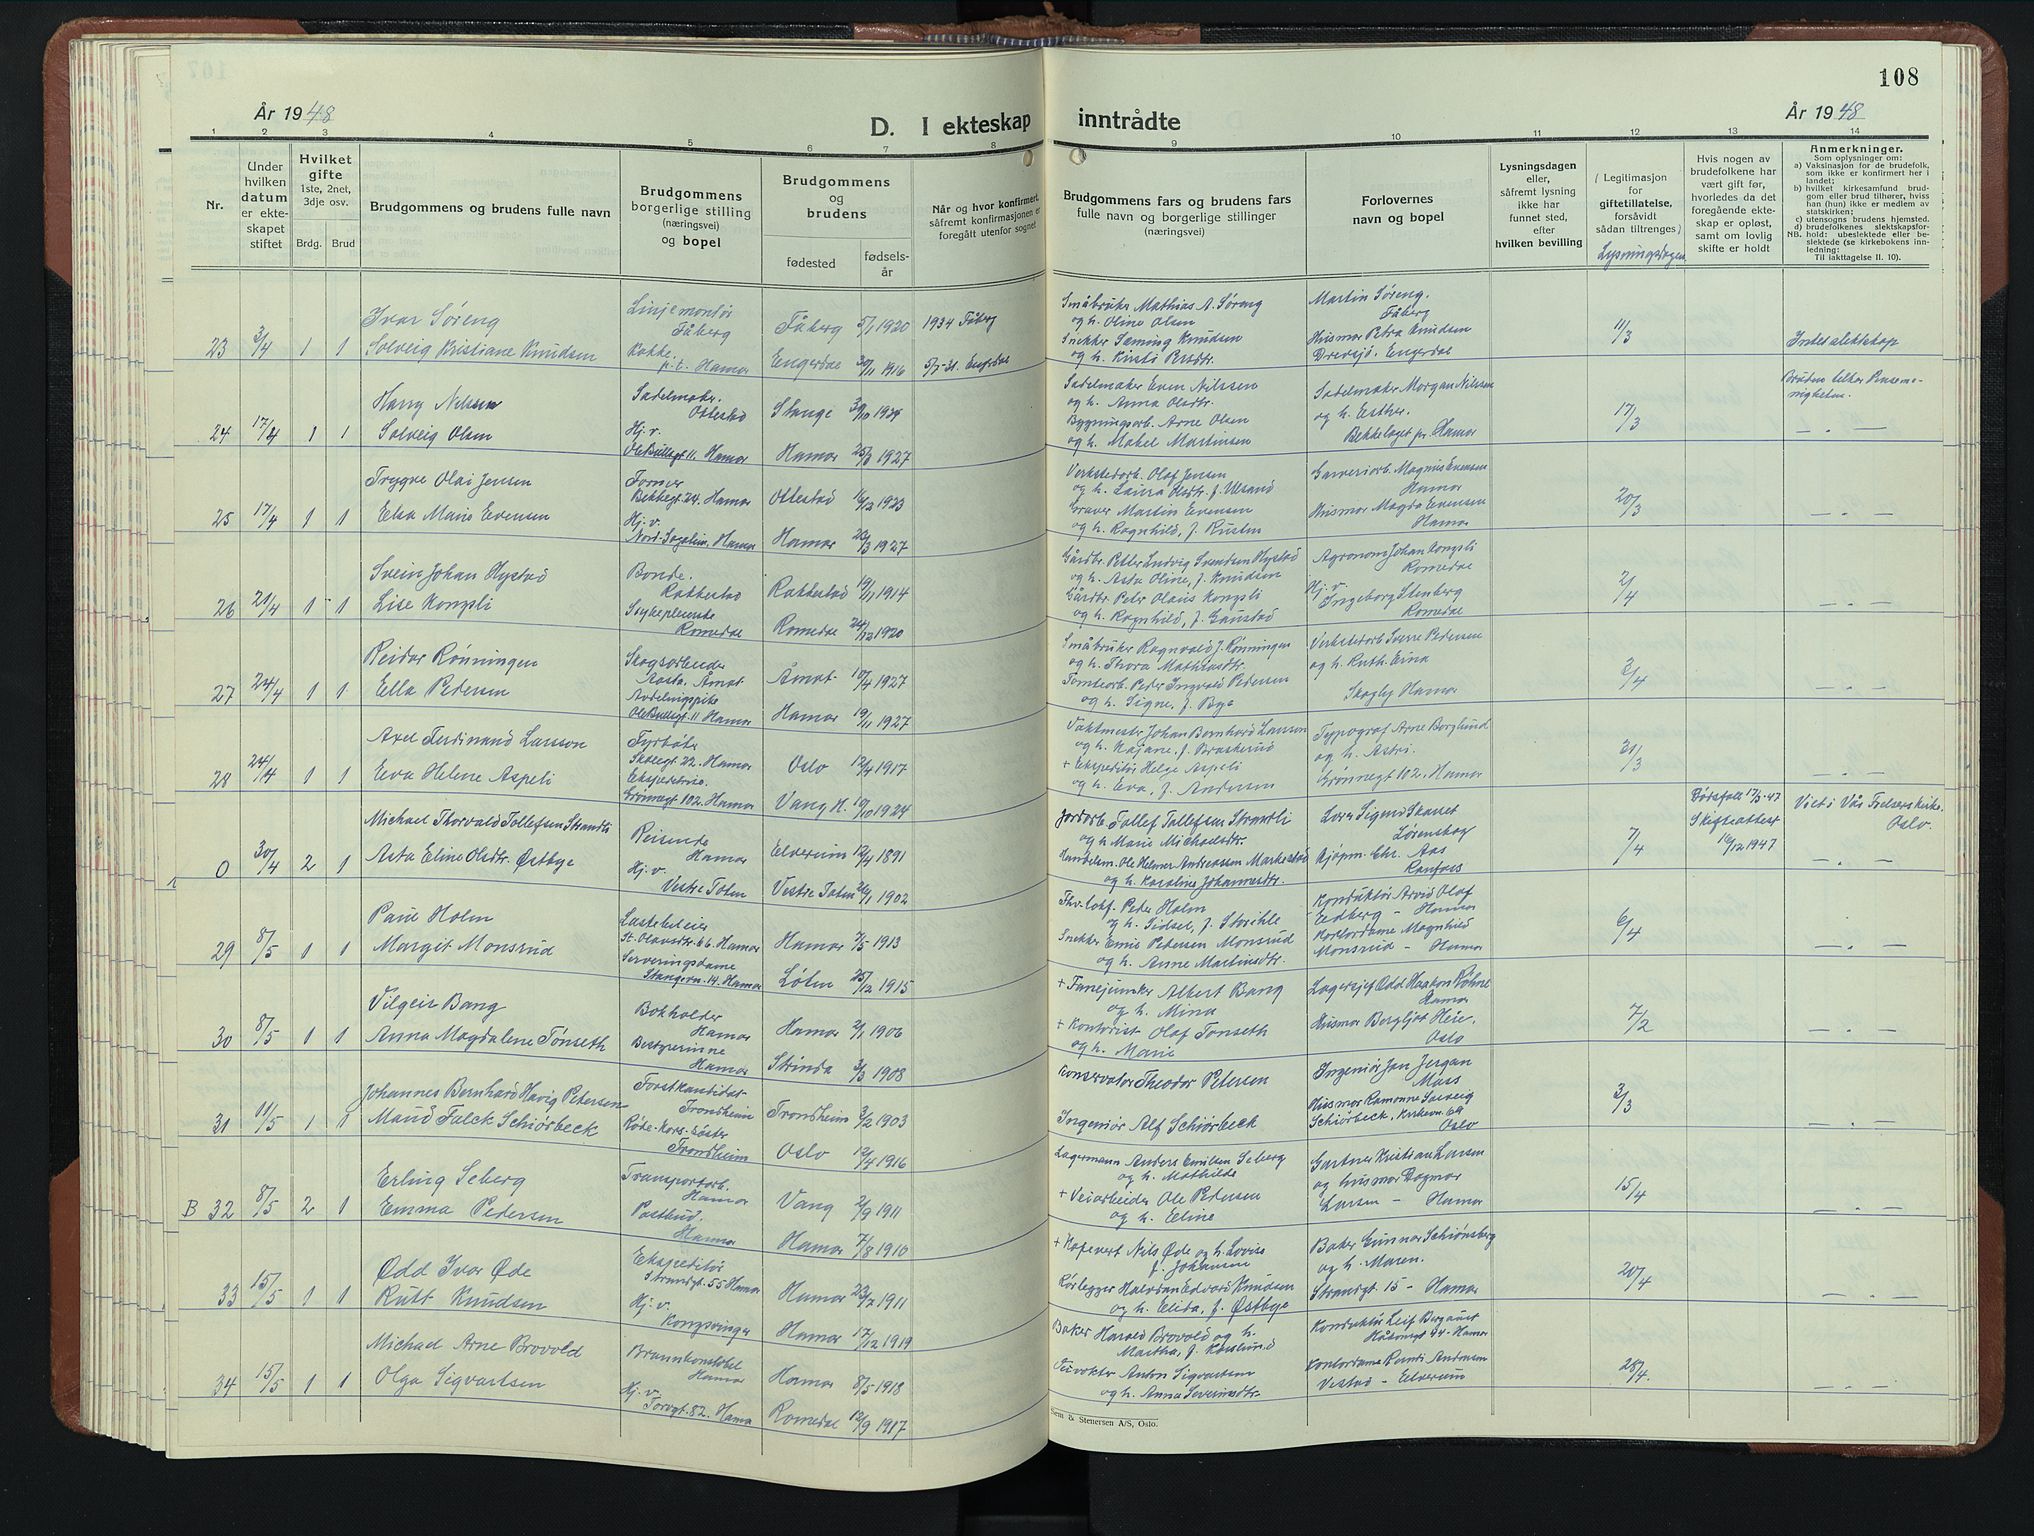 108
År 1948
År 1948
D. I ekteskap inntrådte
1 2 3 4 5 6 7 8 9 10 11 12 13 14
Nr.
Under hvilken datum er ekteskapet stiftet
Hvilket gifte 1ste, 2net, 3dje osv.
Brdg. Brud
Brudgommens og brudens fulle navn
Brudgommens borgerlige stilling (næringsvei) og bopel
Brudgommens og brudens
fødested
fødselsår
Når og hvor konfirmert, såfremt konfirmasjonen er foregått utenfor sognet
Brudgommens fars og brudens fars fulle navn og borgerlige stillinger (næringsvei)
Forlovernes navn og bopel
Lysningsdagen eller, såfremt lysning ikke har funnet sted, efter hvilken bevilling
(Legitimasjon for giftetillatelse, forsåvidt sådan tiltrenges)
Lysningsdagen
Hvis nogen av brudefolkene har vært gift før, hvorledes da det foregående ekteskap er opløst, samt om lovlig skifte er holdt
Anmerkninger.
Som oplysninger om:
a) Vaksinasjon for de brudefolk, som ikke er konfirmert her i landet;
b) hvilket kirkesamfund brudgom eller brud tilhører, hviss han (hun) ikke er medlem av statskirken;
c) utensogns brudens hjemsted.
d) brudefolkenes slektskapsforhold: ubeslektede eller beslektede (se kirkebokens innledning;
NB.
Til iakttagelse II. 10).
23 3/4 1 1
Ivar Søreng
Solveig Kristiane Knudsen
Linjemontør
Fåberg
Kokke
p.t. Hamar
Fåberg 5/1 1920 1934 Fåberg
Engerdal 30/11 1916 5/7-31. Engerdal
Småbruker Mathias A. Søreng
og h. Oline Olsen
Snekker Sæming Knudsen
og h. Kirsti Persdtr.
Martin Søreng.
Fåberg
Husmor Petra Knudsen
Drevsjø. Engerdal
11/3
Intet slektskap
24 17/4 1 1
Harry Nilssen
Solveig Olsen
Sadelmaker.
Ottestad
Hj. v.
Ole Bullsgt 11. Hamar
Stange 30/10 1925
Hamar 25/8 1927
Sadelmaker Even Nilssen
og h. Anna Olsdtr.
Bygningsarb. Arne Olsen
og h. Mabel Martinsen
Sadelmaker Morgan Nilssen
og h. Esther.
Bekkelaget pr. Hamar
17/3
— . —
25 17/4 1 1
Trygve Olai Jensen
Elsa Marie Evensen
Former
Bekkegt. 24. Hamar
Hj. v.
Nord-Sagatun. Hamar
Ottestad 16/12 1923
Hamar 23/3 1927
Verkstedarb. Olaf Jensen
og h. Laura Olsdtr. f. Ulsand
Graver Martin Evensen
og h. Ragnhild, f. Rusten
Garveriarb. Magnus Evensen
Hamar
Husmor Magda Evensen
Hamar
20/3
— . —
26 21/4 1 1
Svein Johan Hystad
Lise Kongsli
Bonde.
Rakkestad
Sykepleierske
Romedal
Rakkestad 19/11 1914
Romedal 24/12 1920
Gårdbr. Petter Ludvig Svendsen Hystad
og h. Asta Oline, f. Knudsen
Gårdbr. Peter Olaus Kongsli
og h. Ragnhild, f. Gaustad
Agronom Johan Kongsli
Romedal
Hj. v.
Ingeborg Stenberg
Romedal
2/4
— . —
27 24/4 1 1
Reidar Rønningen
Ella Pedersen
Skogsarbeider
Aasta. Åmot.
Avdelingspike
Ole Bullsgt 11 Hamar
Åmot. 10/4 1927
Hamar 19/11 1927
Småbruker Ragnvald J. Rønningen
og h. Thora Mathiasdtr.
Tomtearb. Peder Ingvald Pedersen
og h. Signe, f. Bye
Verkstedarb Sverre Pedersen
og h. Ruth Eina
Skogly Hamar
3/4
— . —
28 24/4 1 1
Axel Ferdinand Larsson
Eva Helene Aspeli
Fyrbøter
Skolegt. 22. Hamar
Ekspeditrise.
Grønnegt 102. Hamar
Oslo 12/4 1917
Vang H. 19/10 1924
Vaktmester Johan Bernhard Larsson
og h. Kajane, f. Braskerud
+ Ekspeditør Helge Aspeli
og h. Eva, f. Andersen
Typograf Arne Borglund
og h. Astri.
Grønnegt 102. Hamar
31/3
— . —
0 30/4 2 1
Michael Thorvald Tollefsen Strandli
Asta Eline Olsdtr. Østbye
Reisende
Hamar
Hj. v.
Vestre Toten
Elverum 12/4 1891
Vestre Toten 26/1 1902
Jordarb. Tollef Tollefsen Strandli
og h. Marie Michaelsdtr.
Handelsm. Ole Helmer Andreassen
og h. Karoline Johannesdtr.
Lørenskog
Kjøpm. Chr. Aas
Raufoss
7/4
Dødsfall 17/3-47
Skifteattest
16/12 1947
Viet i Vår Frelsers kirke.
Oslo.
— . —
29 8/5 1 1
Paul Holm
Margit Monsrud
Lastebileier
St. Olavsgt. 66. Hamar
Serveringsdame
Stangevn. 14. Hamar
Hamar 7/5 1913
Løten 25/12 1915
Peder Holm
og h. Sidsel, f. Storihle
Snekker Emil Petersen Monsrud
og h. Anne Martinsdtr.
Konduktør Arvid Olaf
Edberg — Hamar
Kontordame Magnhild
Monsrud — Hamar
6/4
— . —
30 8/5 1 1
Tilgeir Bang
Anna Magdalene Tønseth
Bokholder
Hamar
Bestyrerinne
Hamar
Hamar 2/1 1906
Strinda 3/3 1908
+ Fanejunker Albert Bang
og h. Mina
+ Kontorist Olaf Tønseth
og h. Marie
Lagersjef Odd Haakon
Hamar
Husmor Bergljot Heie.
Oslo
7/2
— . —
31 11/5 1 1
Johannes Bernhard Havig Petersen
Maud Falck Schiørbeck
Forstkandidat
Trondheim
Røde-Kors-søster
Trondheim
Trondheim 3/2 1903
Oslo 12/4 1916
Konservator Theodor Petersen
Ingeniør Alf Schiørbeck
Ingeniør Jan Jergan
Moss
Husmor Ramonne Solveig
Schiørbeck. Kirkevn. 69
Oslo
3/3
— . —
B 32 8/5 2 1
Erling Seberg
Emma Pedersen
Transportarb.
Hamar
Postbud.
Hamar
Vang 2/9 1911
Hamar 7/8 1910
Lagermann Anders Emilsen Seberg
og h. Mathilde
+ Veiarbeider Ole Pedersen
og h. Eline
Gartner Kristian Larsen
og husmor Dagmar
Larsen — Hamar
15/4
— . —
33 15/5 1 1
Odd Ivar Øde
Rutt Knudsen
Ekspeditør
Strandgt. 55 Hamar
Hj. v.
Kongsvinger
Hamar 23/7 1911
Hamar 17/12 1919
+ Kafevert Nils Øde og h. Lovise
f. Johansen
Rørlegger Halvdan Edvard Knudsen
og h. Elida, f. Østbye
Baker Gunnar Schiønsberg
og h. Maren.
Strandgt 15 — Hamar
20/4
— . —
34 15/5 1 1
Michael Arne Brovold
Olga Sigvartsen
Brannkonstabel
Hamar
Hj. v.
Torvgt. 82. Hamar
Hamar 8/5 1918
Romedal 12/9 1917
Baker Harald Brovold og h.
Martha, f. Koslund
Anton Sigvartsen
og h. Anna Severinsdtr.
Konduktør Leif Bergaust
Hamar
Kontordame Randi Andersen
Vestad — Elverum
28/4.
— . —
Sem & Stenersen A/S, Oslo.